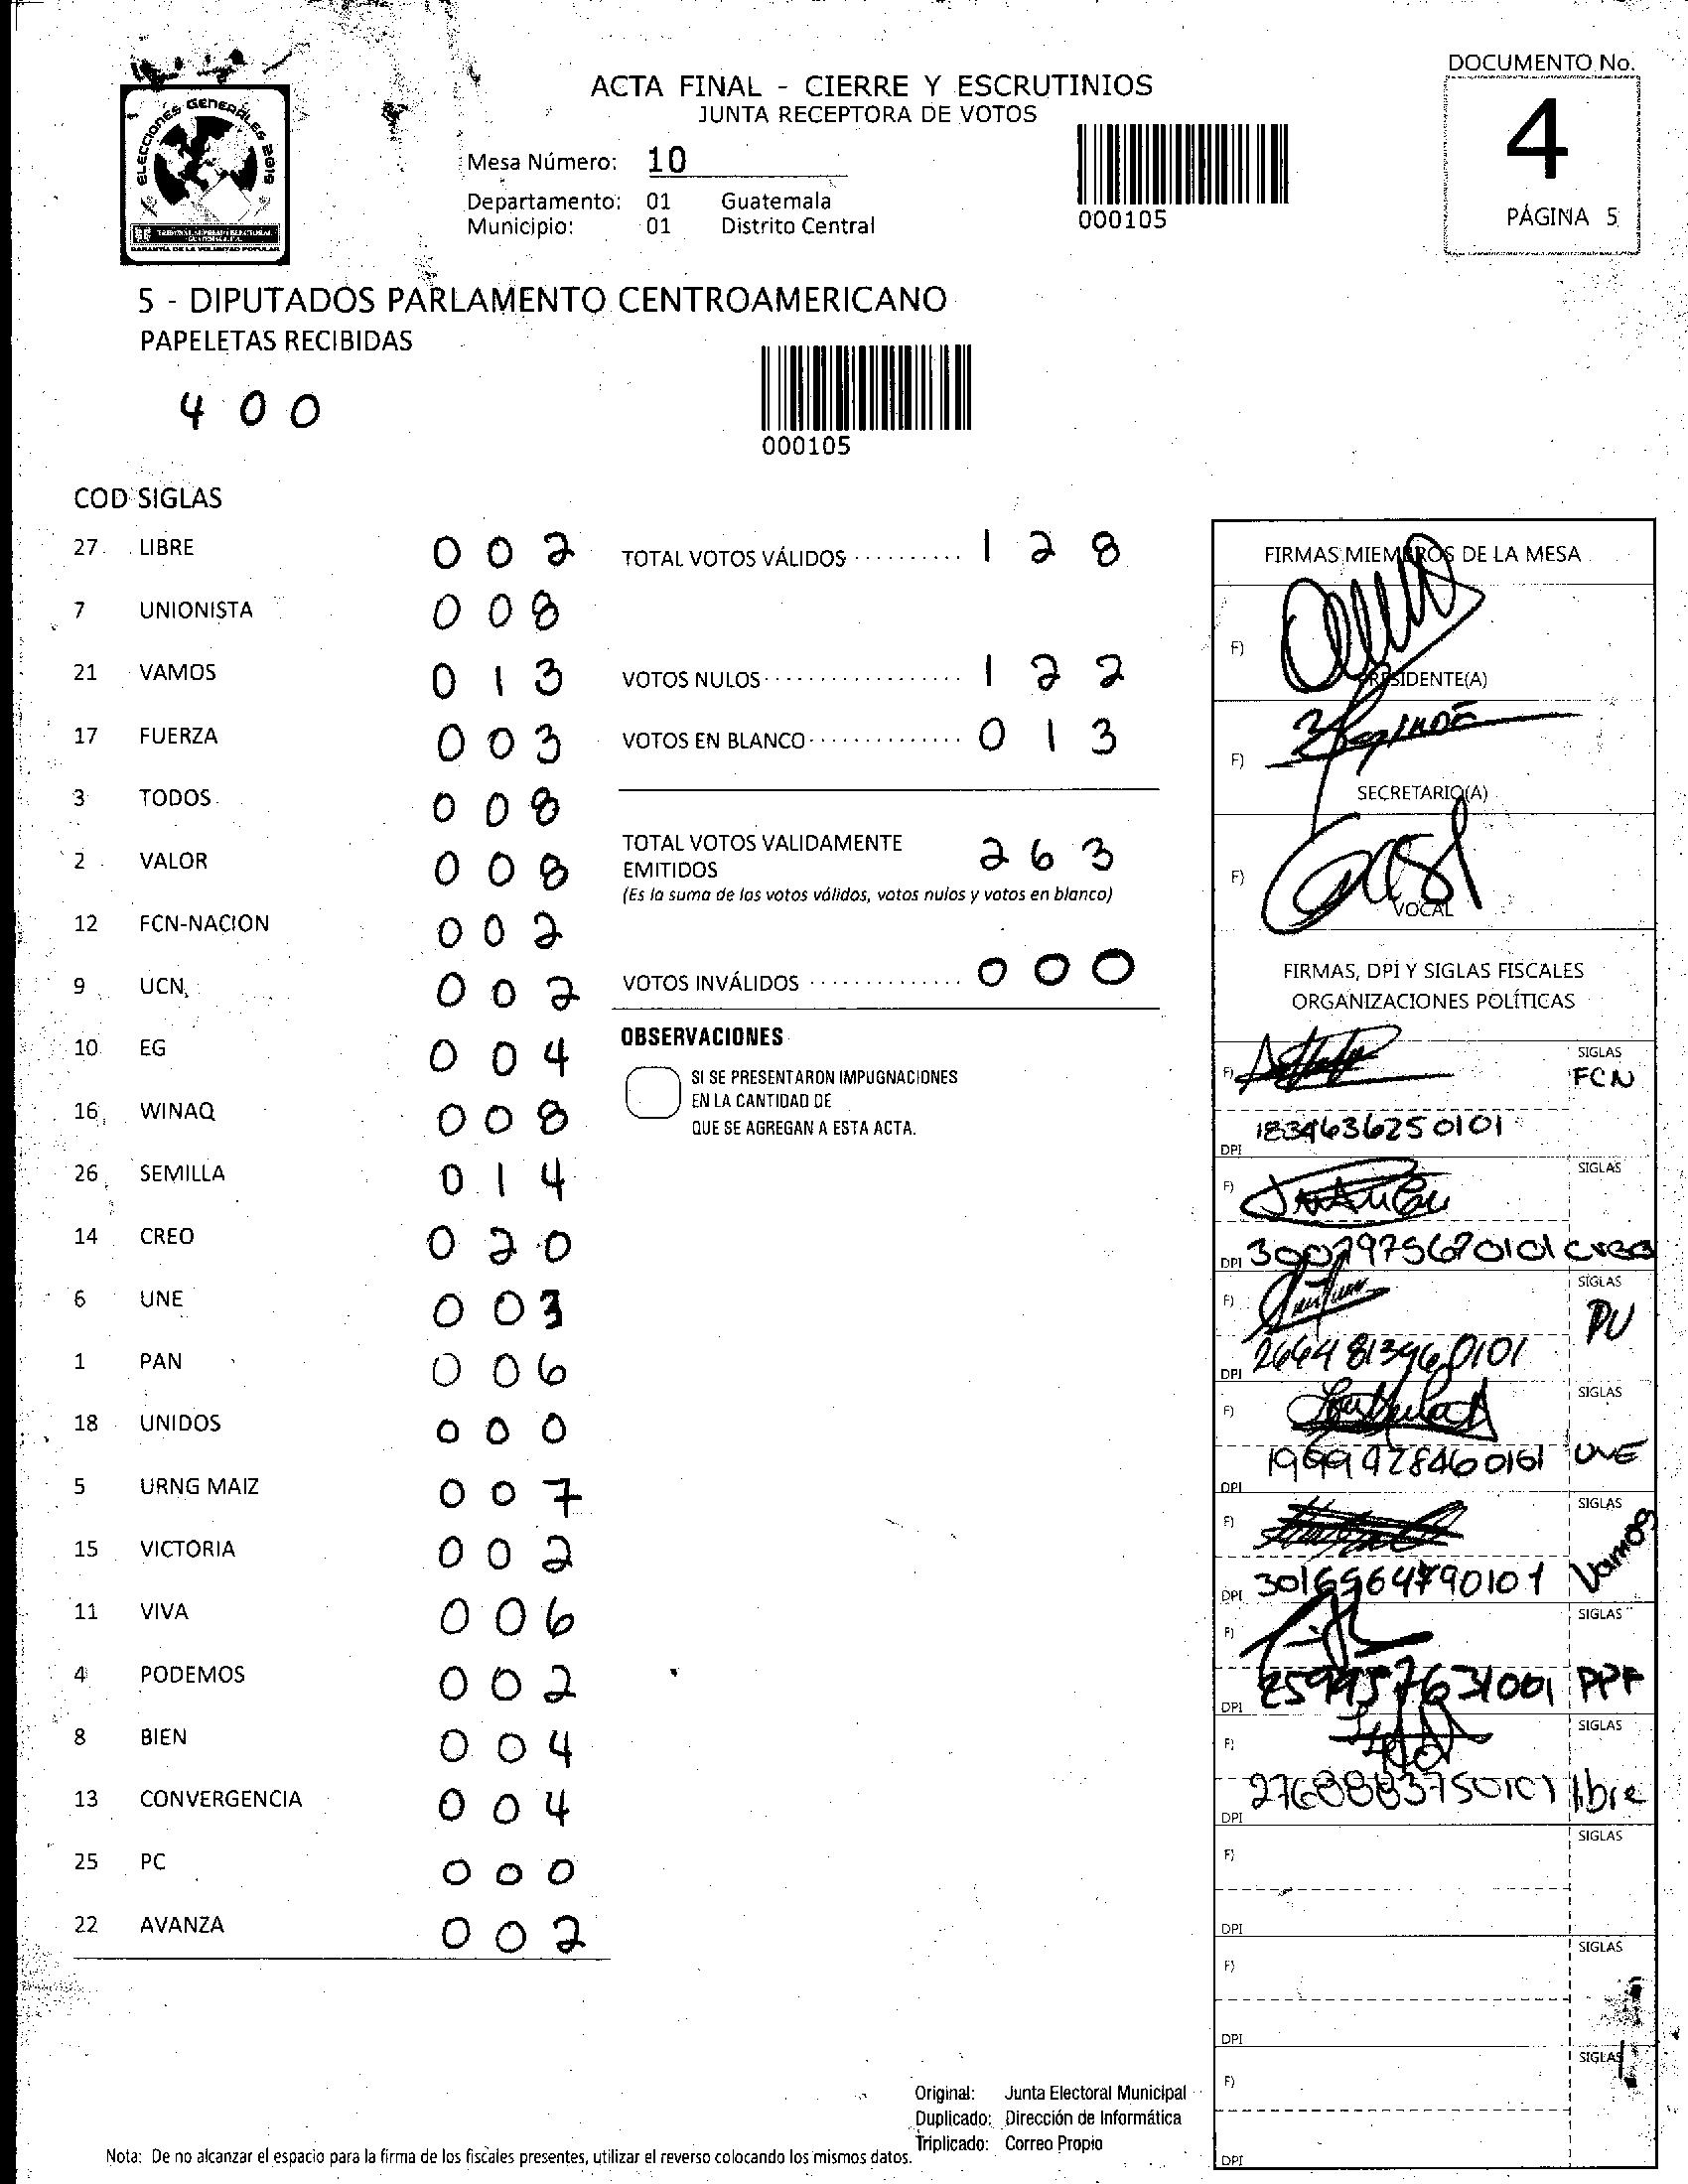 DOCUMENTO No.
4
PÁGINA 5
ACTA FINAL - CIERRE Y ESCRUTINIOS
JUNTA RECEPTORA DE VOTOS
ELECCIONES GENERALES 2019
TRIBUNAL SUPREMO ELECTORAL
GUATEMALA, C.A.
GARANTÍA DE LA VOLUNTAD POPULAR
Mesa Número: 10
Departamento: 01 Guatemala
Municipio: 01 Distrito Central
000105
5 - DIPUTADOS PARLAMENTO CENTROAMERICANO
PAPELETAS RECIBIDAS
400
000105
COD SIGLAS
27 LIBRE 002
7 UNIONISTA 008
21 VAMOS 013
17 FUERZA 003
3 TODOS 008
2 VALOR 008
12 FCN-NACION 002
9 UCN 002
10 EG 004
16 WINAQ 008
26 SEMILLA 014
14 CREO 020
6 UNE 003
1 PAN 006
18 UNIDOS 000
5 URNG MAIZ 007
15 VICTORIA 002
11 VIVA 006
4 PODEMOS 002
8 BIEN 004
13 CONVERGENCIA 004
25 PC 000
22 AVANZA 002
TOTAL VOTOS VÁLIDOS .......... 128
VOTOS NULOS .................. 122
VOTOS EN BLANCO .............. 013
TOTAL VOTOS VALIDAMENTE
EMITIDOS 263
(Es la suma de los votos válidos, votos nulos y votos en blanco)
VOTOS INVÁLIDOS .............. 000
OBSERVACIONES
SI SE PRESENTARON IMPUGNACIONES
EN LA CANTIDAD DE
QUE SE AGREGAN A ESTA ACTA.
FIRMAS MIEMBROS DE LA MESA
F)
PRESIDENTE(A)
F)
SECRETARIO(A)
F)
VOCAL
FIRMAS, DPI Y SIGLAS FISCALES
ORGANIZACIONES POLÍTICAS
F) SIGLAS
FCN
DPI 1834636250101
F) SIGLAS
DPI creo
F) SIGLAS
PU
DPI 2664813960101
F) SIGLAS
DPI UNE
F) SIGLAS
Vamos
DPI
F) SIGLAS
DPI PPF
F) SIGLAS
DPI libre
F) SIGLAS
DPI
F) SIGLAS
DPI
F) SIGLAS
DPI
Original: Junta Electoral Municipal
Duplicado: Dirección de Informática
Triplicado: Correo Propio
Nota: De no alcanzar el espacio para la firma de los fiscales presentes, utilizar el reverso colocando los mismos datos.